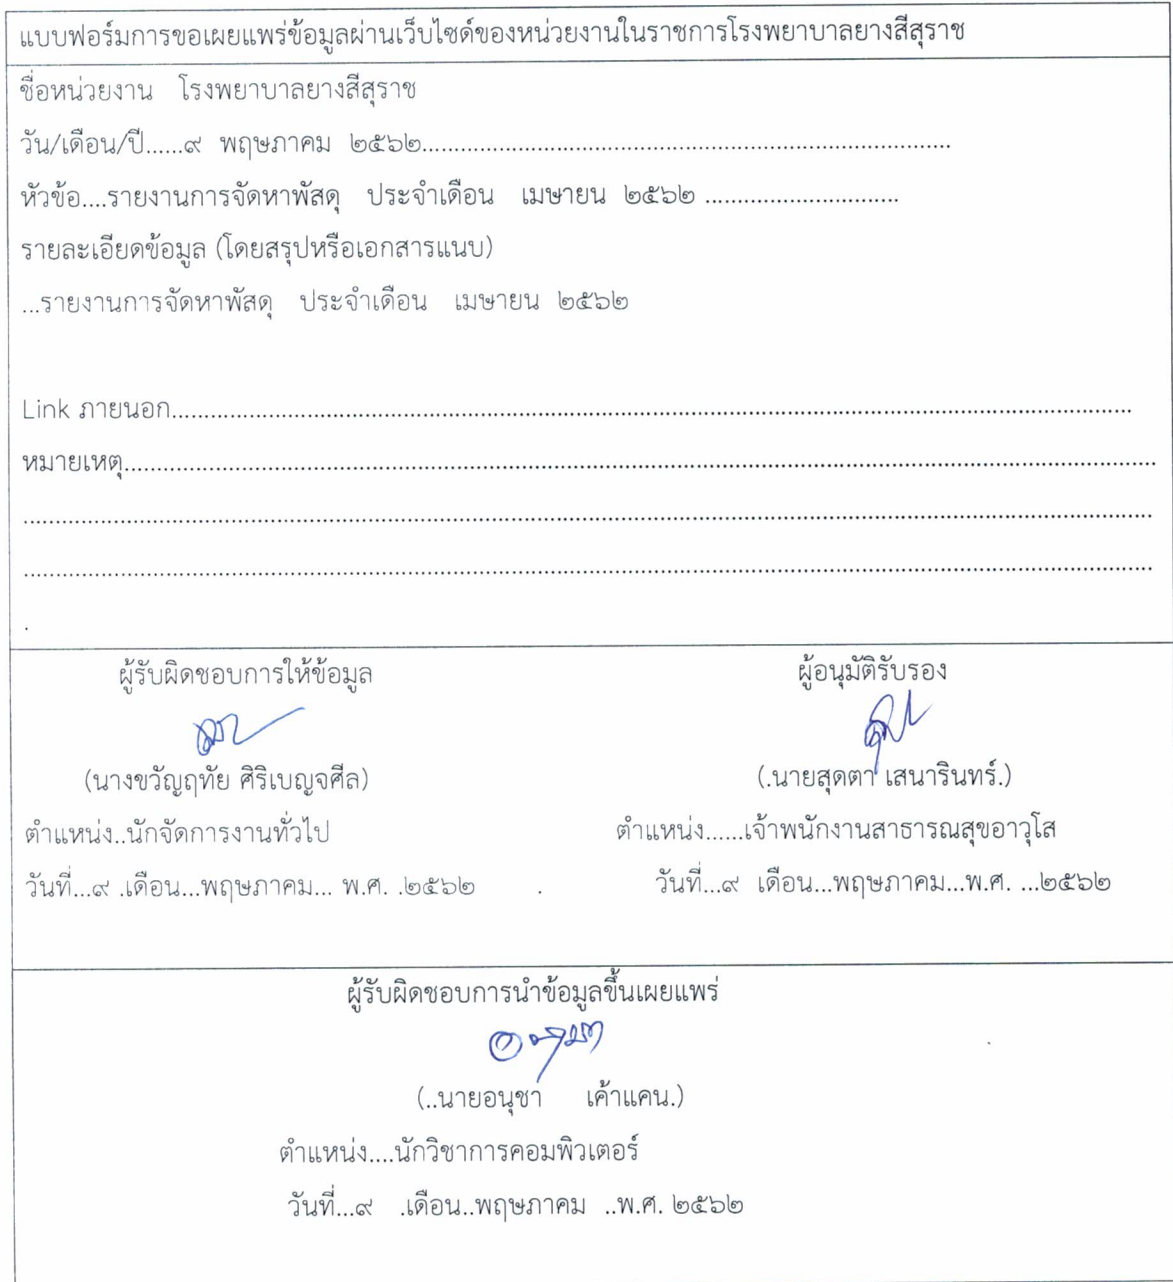 แบบฟอร์มการขอเผยแพร่ข้อมูลผ่านเว็บไซต์ของหน่วยงานในราชการโรงพยาบาลยางสีสุราช
ชื่อหน่วยงาน โรงพยาบาลยางสีสุราช
วัน/เดือน/ปี......๙ พฤษภาคม ๒๕๖๒..................................................................................
หัวข้อ....รายงานการจัดหาพัสดุ ประจำเดือน เมษายน ๒๕๖๒ ..............................
รายละเอียดข้อมูล (โดยสรุปหรือเอกสารแนบ)
...รายงานการจัดหาพัสดุ ประจำเดือน เมษายน ๒๕๖๒
Link ภายนอก....................................................................................................................................................
หมายเหตุ................................................................................................................................................................
................................................................................................................................................................................
................................................................................................................................................................................
.
ผู้รับผิดชอบการให้ข้อมูล
(นางขวัญฤทัย ศิริเบญจศีล)
ตำแหน่ง..นักจัดการงานทั่วไป
วันที่...๙ .เดือน...พฤษภาคม... พ.ศ. .๒๕๖๒ .
ผู้อนุมัติรับรอง
(.นายสุดตา เสนารินทร์.)
ตำแหน่ง......เจ้าพนักงานสาธารณสุขอาวุโส
วันที่...๙ เดือน...พฤษภาคม...พ.ศ. ...๒๕๖๒
ผู้รับผิดชอบการนำข้อมูลขึ้นเผยแพร่
(..นายอนุชา เค้าแคน.)
ตำแหน่ง....นักวิชาการคอมพิวเตอร์
วันที่...๙ .เดือน..พฤษภาคม ..พ.ศ. ๒๕๖๒